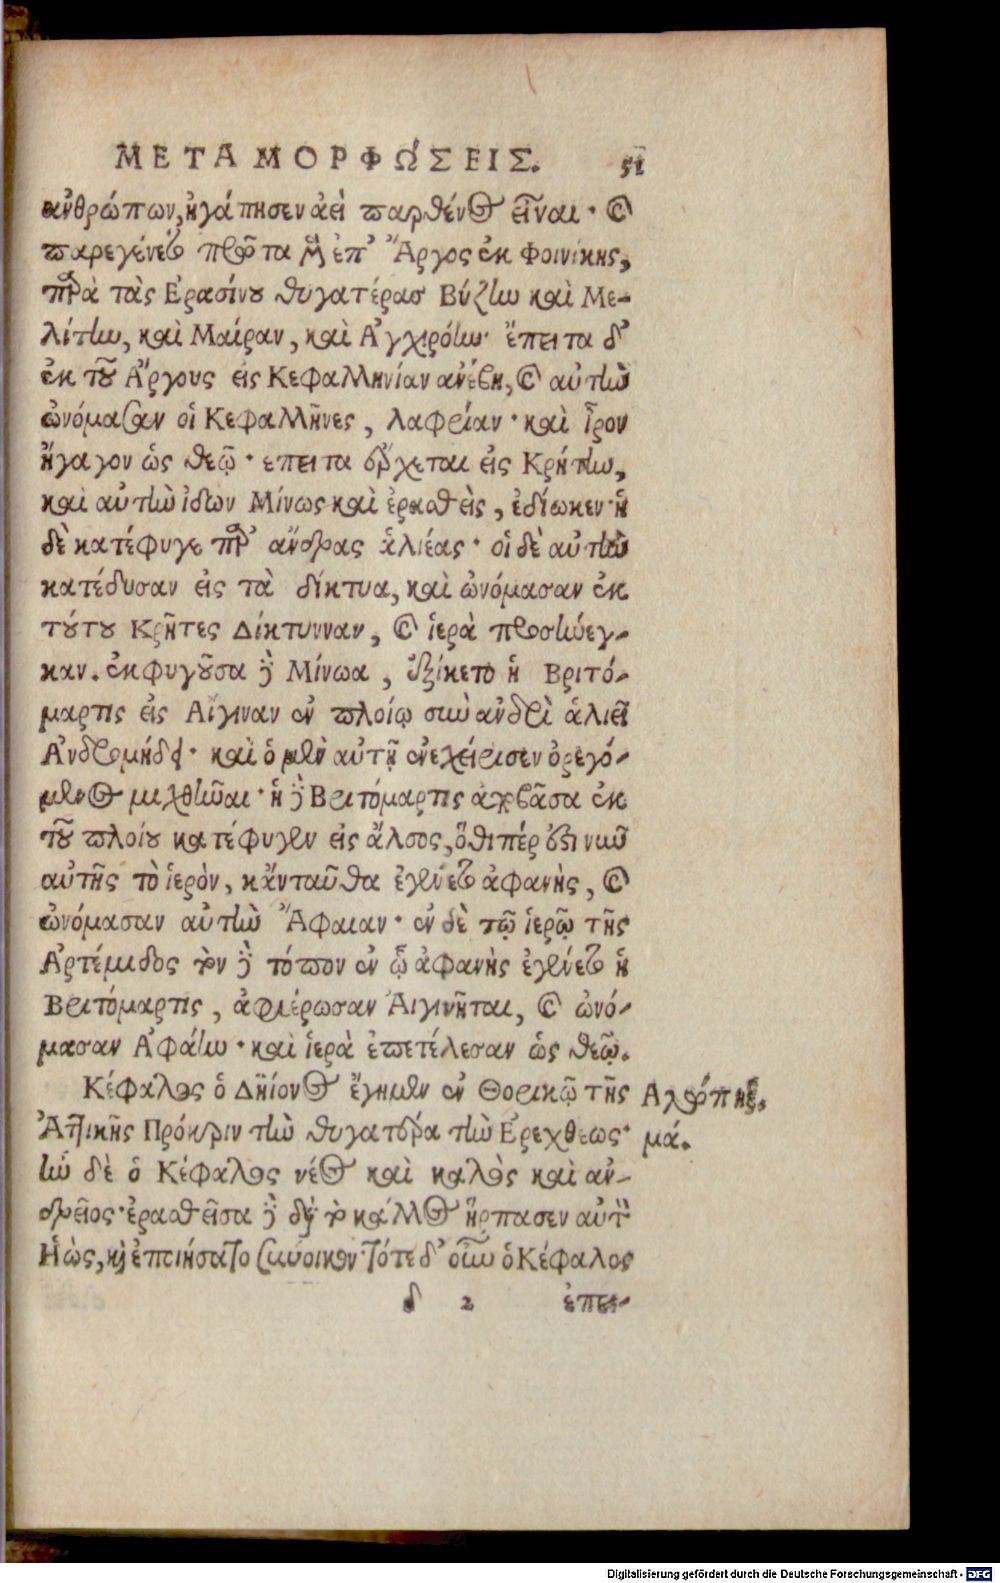 ΜΕΤΑΜΟΡΦΩΣΕΙΣ. 51
ἀνθρώπων, ἠγάπησεν ἀεὶ παρθένος εἶναι· καὶ
παρεγένετο πρῶτα μὲν ἐπ’ Ἄργος ἐκ Φοινίκης,
παρὰ τὰς Ἐρασίνου θυγατέρας Βύζην καὶ Με-
λίτην, καὶ Μαίραν, καὶ Ἀγχιρόην· ἔπειτα δ’
ἐκ τοῦ Ἄργους εἰς Κεφαλληνίαν ἀνέβη, καὶ αὐτὴν
ὠνόμασαν οἱ Κεφαλλῆνες, λαφρίαν· καὶ ἷρον
ἤγαγον ὡς θεῷ· επειτα ἔρχεται εἰς Κρήτην,
καὶ αὐτὴν ἰδων Μίνως καὶ ἐρασθεὶς, ἐδίωκεν· ἡ
δὲ κατέφυγε παρ’ ἄνδρας ἁλιέας· οἱ δὲ αὐτὴν
κατέδυσαν εἰς τὰ δίκτυα, καὶ ὠνόμασαν ἐκ
τούτου Κρῆτες Δίκτυνναν, καὶ ἱερὰ προσήνεγ-
καν. ἐκφυγοῦσα δὲ Μίνωα, ἐξίκετο ἡ Βριτό-
μαρτις εἰς Αἴγιναν ἐν πλοίῳ σὺν ἀνδρὶ ἁλιεῖ
Ἀνδρομήδει· καὶ ὁ μὲν αὐτῇ ἐνεχείρισεν ὀρεγό-
μενος μιχθῆναι· ἡ δὲ Βριτόμαρτις ἀποβᾶσα ἐκ
τοῦ πλοίου κατέφυγεν εἰς ἄλσος, ὅθιπέρ ἐστι νῦν
αὐτῆς τὸ ἱερὸν, κἀνταῦθα ἐγένετο ἀφανὴς, καὶ
ὠνόμασαν αὐτὴν Ἀφαιαν· ἐν δὲ τῷ ἱερῷ τῆς
Ἀρτέμιδος τὸν δὲ τόπον ἐν ᾧ ἀφανὴς ἐγένετο ἡ
Βριτόμαρτις, ἀφιέρωσαν Αἰγινῆται, καὶ ὠνό-
μασαν Ἀφάην· καὶ ἱερὰ ἐπετέλεσαν ὡς θεῷ.
Κέφαλος ὁ Δηΐονος ἔγημεν ἐν Θορικῷ τῆς
Ἀλώπηξ.
Ἀττικῆς Πρόκριν τὴν θυγατέρα τὴν Ἐρεχθεως·
μά.
ἦν δὲ ὁ Κέφαλος νέος καὶ καλὸς καὶ αν-
δρεῖος· ἐρασθεῖσα δὲ διὰ τὸ κάλλος ἥρπασεν αὐτὸν
Ἠὼς, καὶ ἐποιήσατο σύνοικον· τότε δ’ οὖν ὁ Κέφαλος
δ 2 ἐπει-
Digitalisierung gefördert durch die Deutsche Forschungsgemeinschaft - DFG